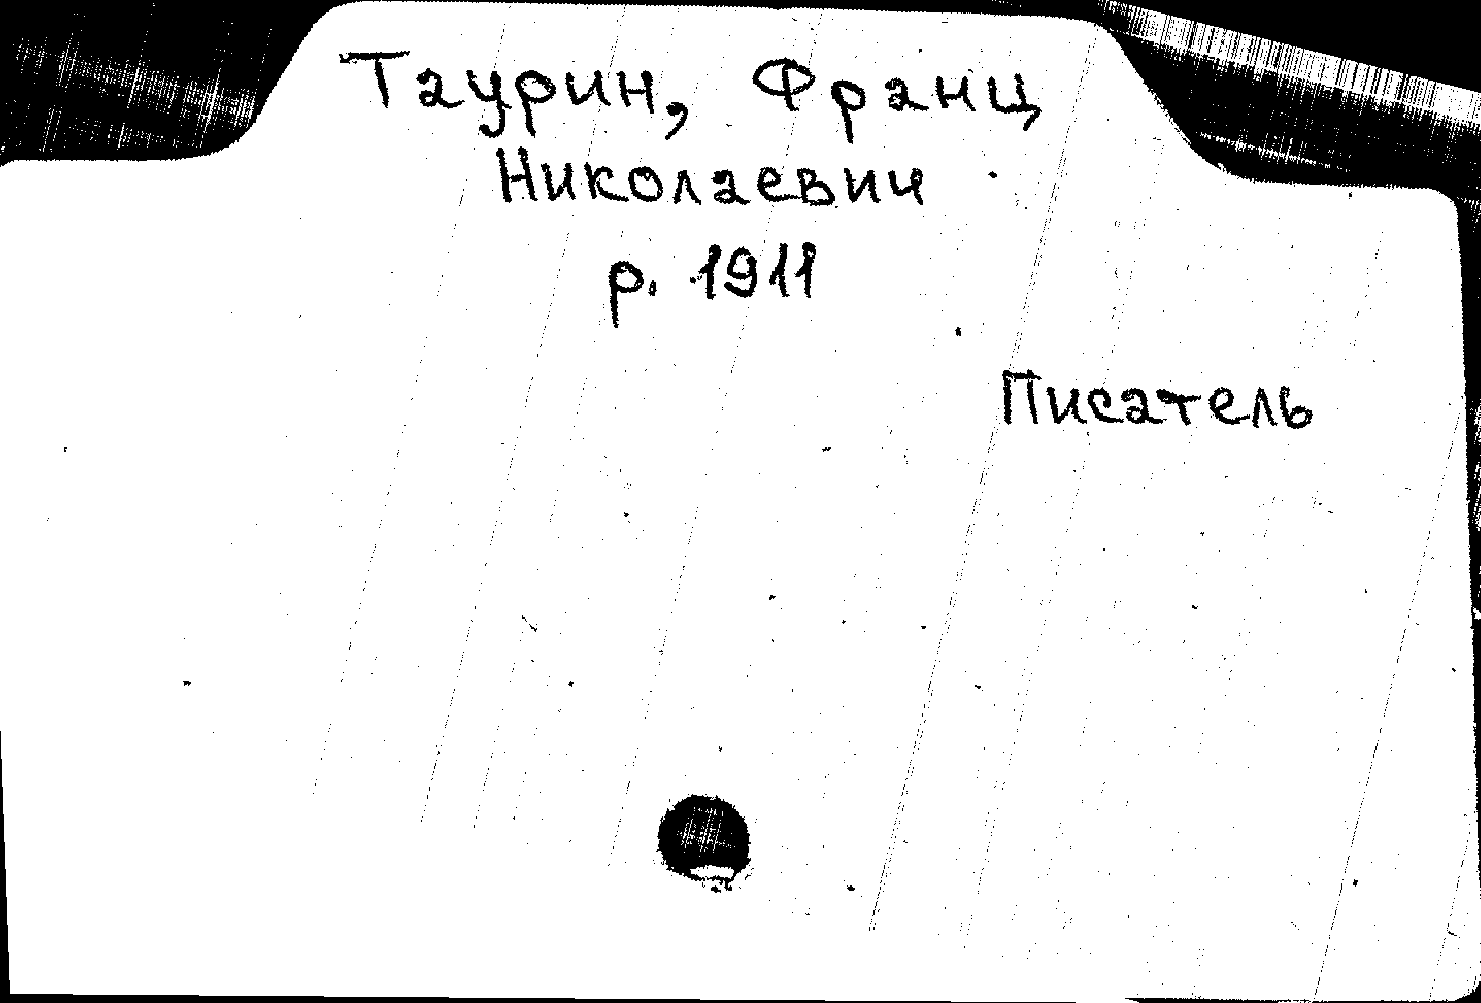 Таурин, Франц
Николаевич
р. 1911
Писатель